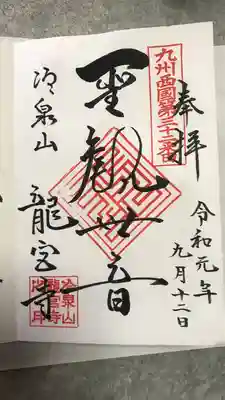 奉拝
令和元年
九月十二日
九州西國第三十二番
聖観世音
冷泉山
龍宮寺
冷泉山
龍宮寺